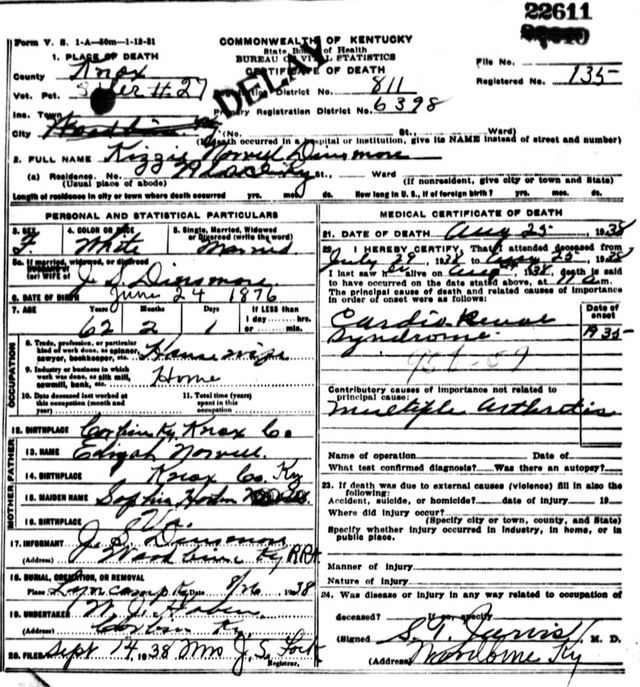 22611
Form V. S. 1-A—50m—1-12-31
COMMONWEALTH OF KENTUCKY
State Board of Health
BUREAU OF VITAL STATISTICS
CERTIFICATE OF DEATH
DELAY
1. PLACE OF DEATH
County Knox
Vot. Pct. #27
Inc. Town
City Woodbine
Registration District No. 811
Primary Registration District No. 6398
File No.
Registered No. 135
(No. St., Ward)
(If death occurred in a hospital or institution, give its NAME instead of street and number)
2. FULL NAME Kizzie Norvell Dinsmore
(a) Residence. No. St., Ward
(Usual place of abode) (If nonresident, give city or town and State)
Length of residence in city or town where death occurred yrs. mos. ds. How long in U. S., if of foreign birth? yrs. mos. ds.
PERSONAL AND STATISTICAL PARTICULARS
3. SEX F
4. COLOR OR RACE White
5. Single, Married, Widowed or Divorced (write the word) Married
5a. If married, widowed, or divorced
HUSBAND of
(or) WIFE of J. S. Dinsmore
6. DATE OF BIRTH June 24 1876
7. AGE Years Months Days If LESS than
62 2 1 1 day hrs. or min.
OCCUPATION
8. Trade, profession, or particular kind of work done, as spinner, sawyer, bookkeeper, etc. Housewife
9. Industry or business in which work was done, as silk mill, sawmill, bank, etc. Home
10. Date deceased last worked at this occupation (month and year)
11. Total time (years) spent in this occupation
12. BIRTHPLACE Corbin Ky. Knox Co.
MOTHER FATHER
13. NAME Norvell
14. BIRTHPLACE Knox Co. Ky
15. MAIDEN NAME Sophia
16. BIRTHPLACE Va.
17. INFORMANT J. S. Dinsmore
(Address) Woodbine Ky RR#
18. BURIAL, CREMATION, OR REMOVAL
Place Lynncamp Ky Date 8/26 1938
19. UNDERTAKER W. J.
(Address) Corbin Ky
20. FILED Sept 14, 1938 Mrs J. S. Registrar.
MEDICAL CERTIFICATE OF DEATH
21. DATE OF DEATH Aug 25, 1938
22. I HEREBY CERTIFY, That I attended deceased from
July 29, 1938 to Aug 25, 1938
I last saw her alive on Aug 1938, death is said
to have occurred on the date stated above, at 11 a.m.
The principal cause of death and related causes of importance
in order of onset were as follows:
Date of onset
Cardio Renal
Syndrome 1935
Contributory causes of importance not related to
principal cause:
Multiple Arthritis
Name of operation Date of
What test confirmed diagnosis? Was there an autopsy?
23. If death was due to external causes (violence) fill in also the
following:
Accident, suicide, or homicide? date of injury 19
Where did injury occur?
(Specify city or town, county, and State)
Specify whether injury occurred in industry, in home, or in
public place.
Manner of injury
Nature of injury
24. Was disease or injury in any way related to occupation of
deceased? If so, specify
(Signed S. T. Jarvis M. D.
(Address) Woodbine Ky